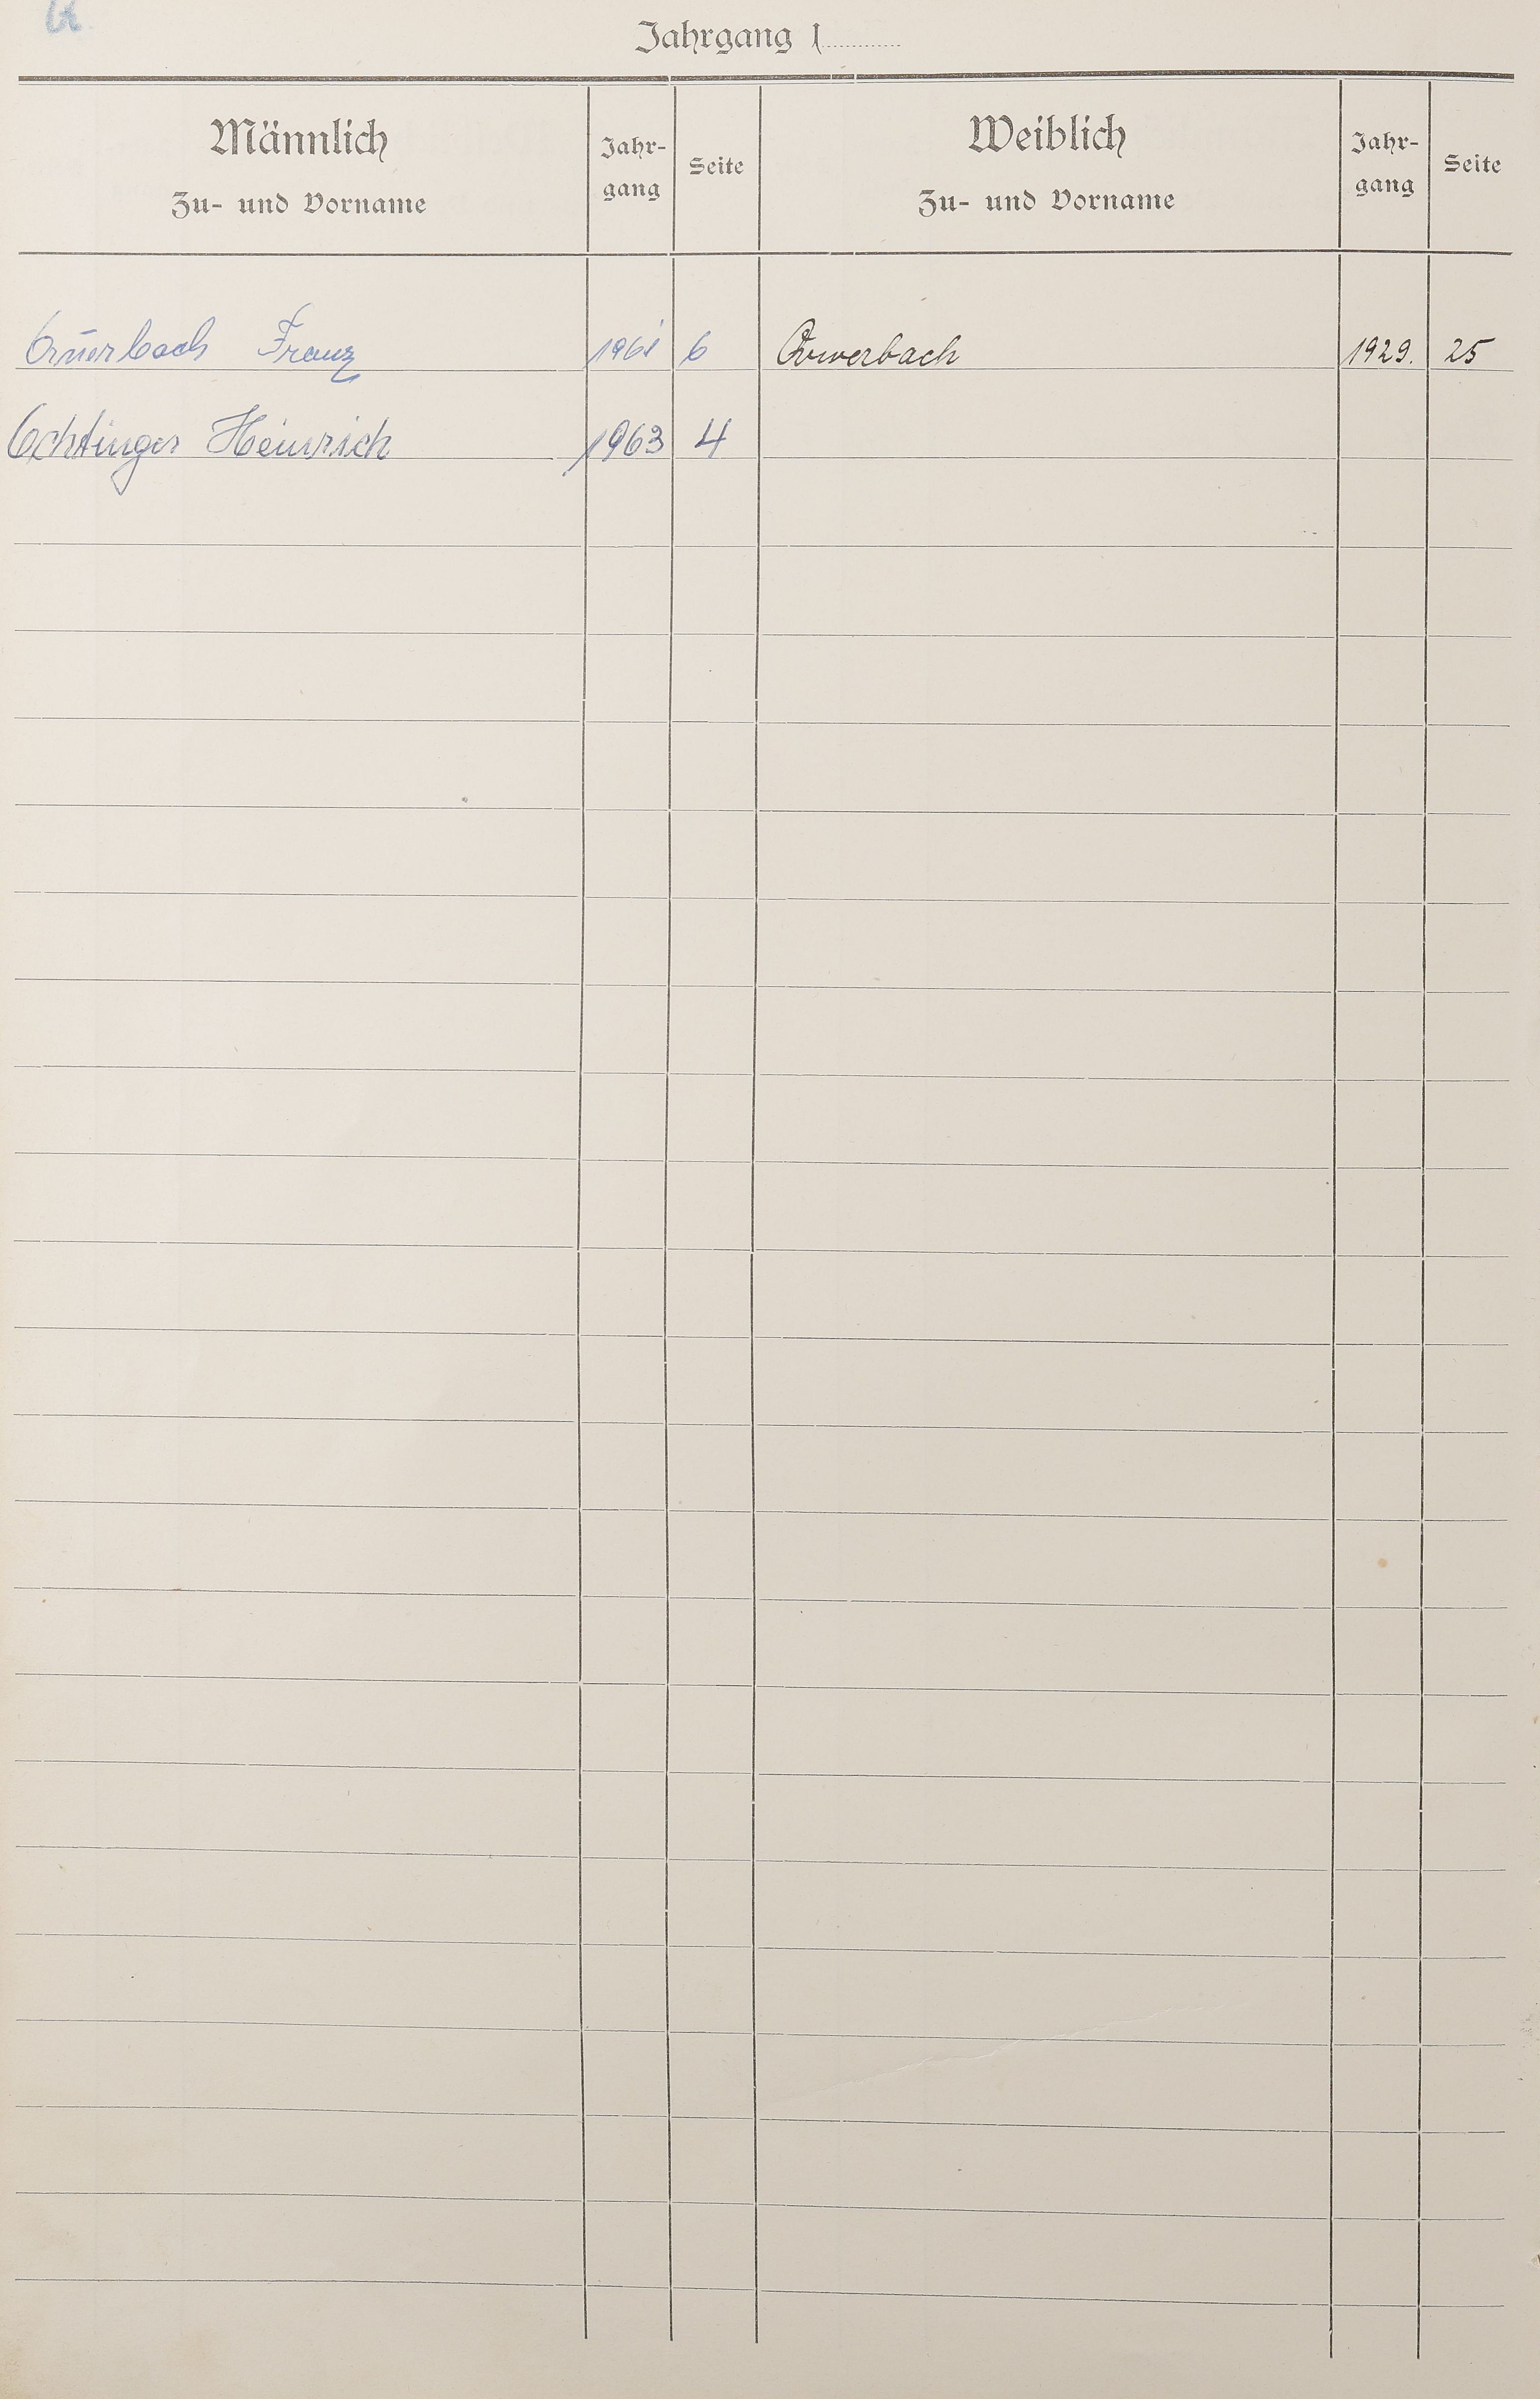 A
Jahrgang 1............
Männlich
Zu- und Vorname
Jahr-
gang
Seite
Weiblich
Zu- und Vorname
Jahr-
gang
Seite
Auerbach Franz 1961 6 Auerbach 1929. 25
Achtinger Heinrich 1963 4